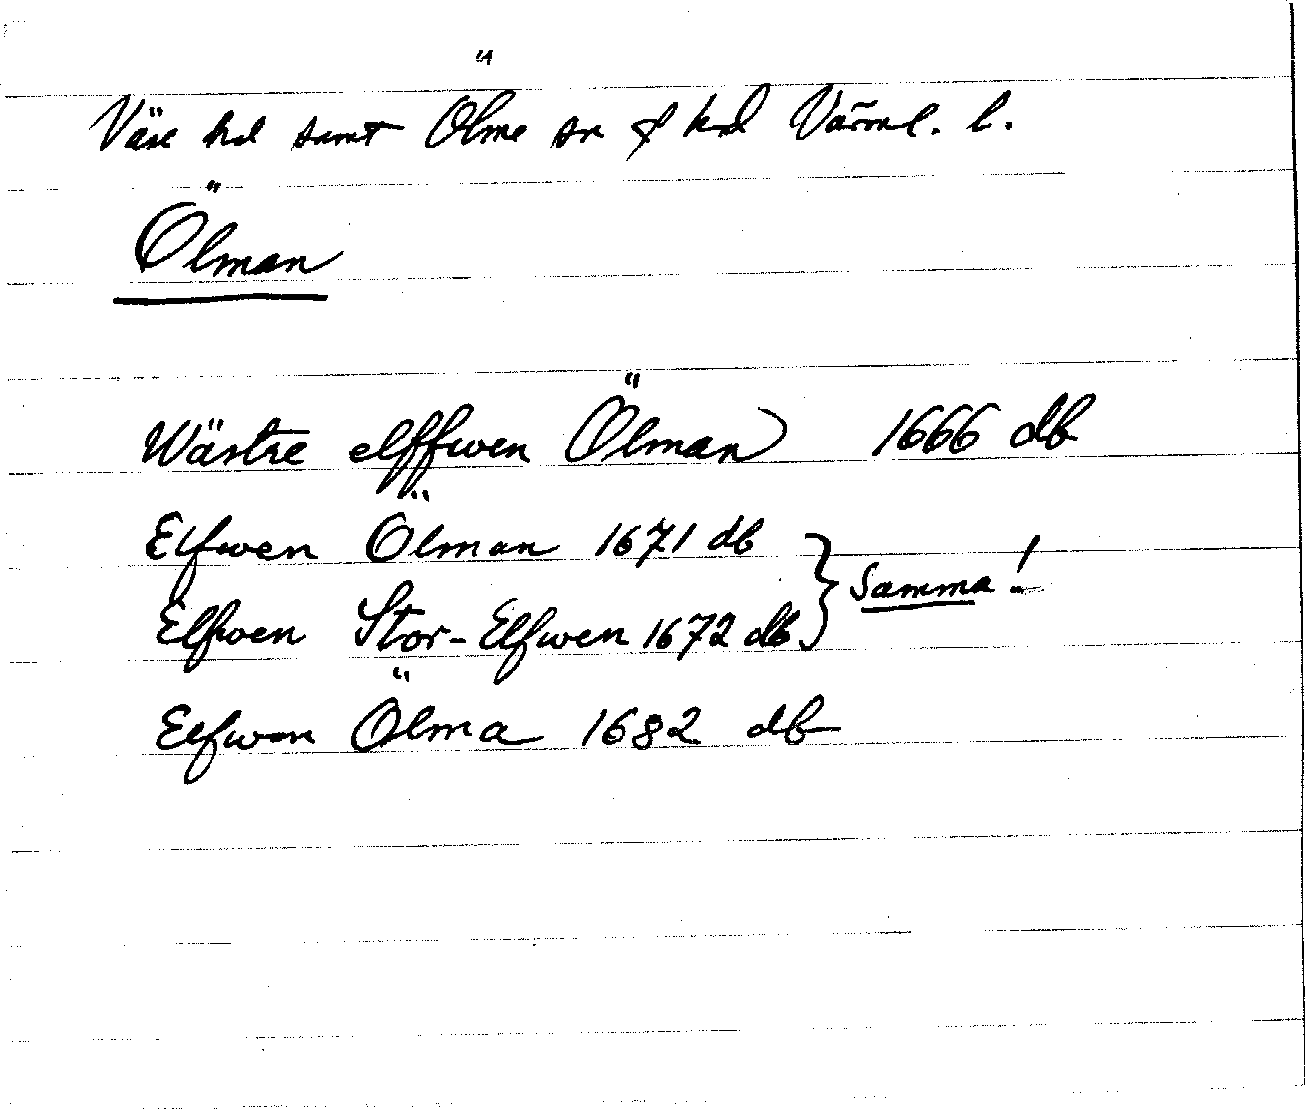 Väse hd samt Ölme sn & hd Värml. l.
Ölman
Wästre elffwen Ölman 1666 db
Elfwen Ölman 1671 db
Elfwen Stor-Elfwen 1672 db } Samma!
Elfwen Ölma 1682 db